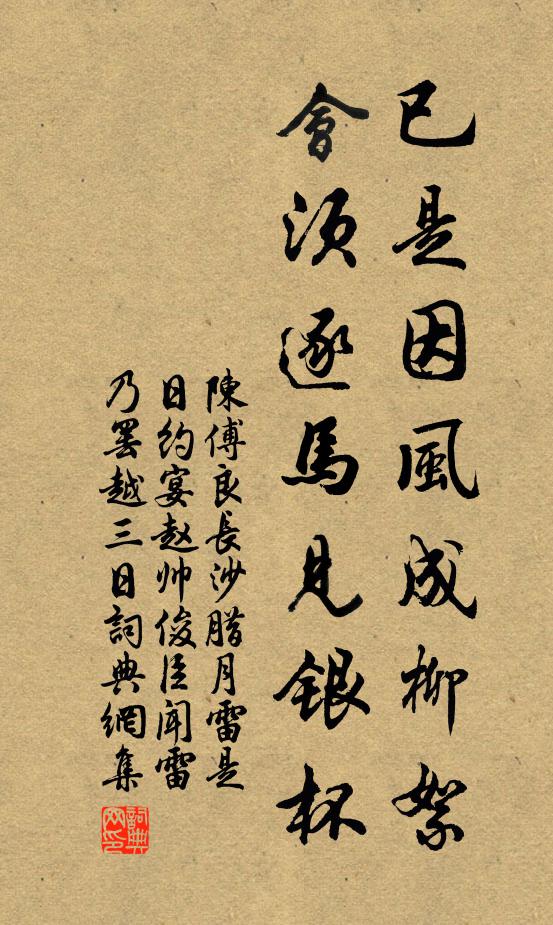 已是因風成柳絮
會須逐馬見銀杯
陳傅良長沙腊月雷是
日約宴赵帅俊臣闻雷
乃罢越三日詞典網集
詞典网印